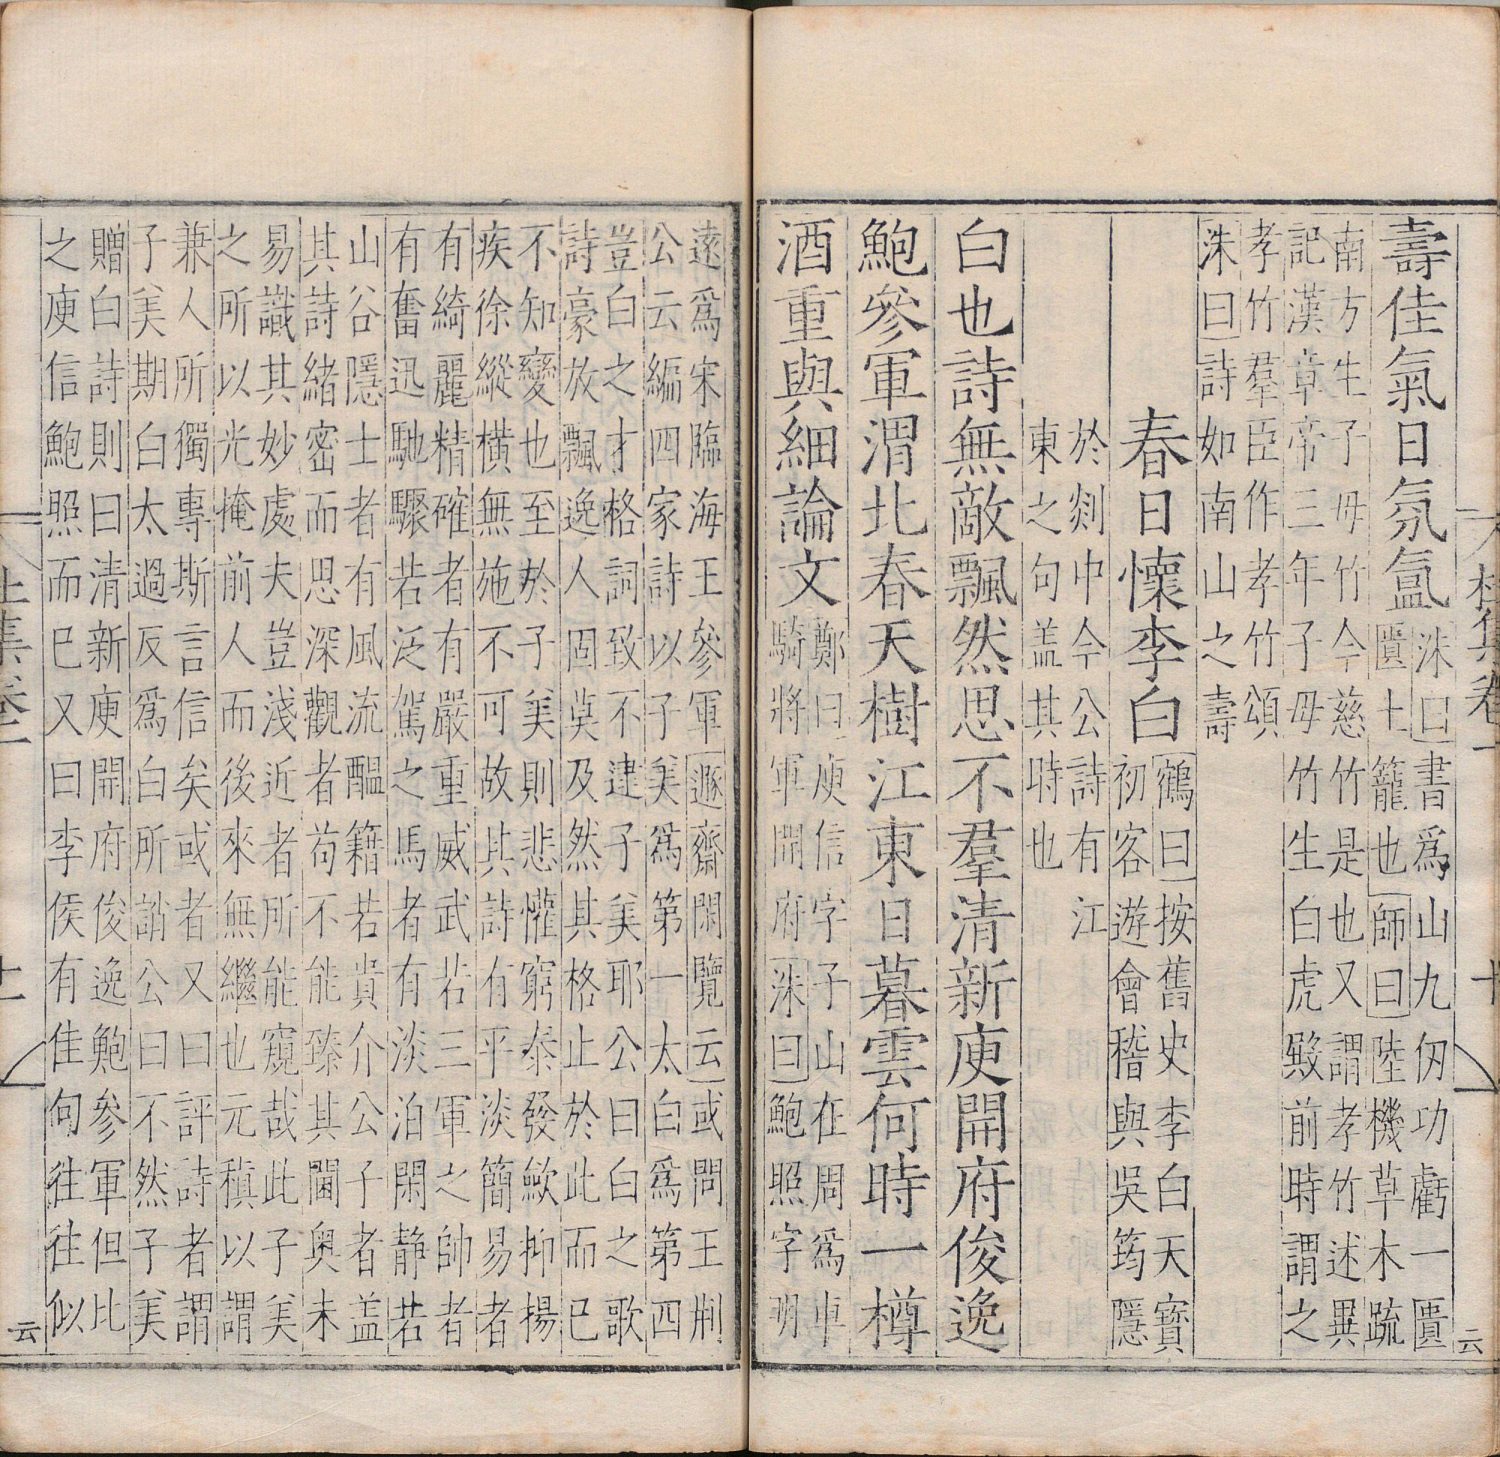 壽佳氣日氛氳
洙曰書爲山九仞功虧一匱
匱土籠也師曰陸機草木疏
南方生子母竹今慈竹是也又謂孝竹述異
記漢章帝三年子母竹生白虎殿前時謂之
孝竹羣臣作孝竹頌
洙曰詩如南山之壽
春日懷李白
鶴曰按舊史李白天寶
初客遊會稽與吳筠隱
於剡中今公詩有江
東之句盖其時也
白也詩無敵飄然思不羣清新庾開府俊逸
鮑參軍渭北春天樹江東日暮雲何時一樽
酒重與細論文
鄭曰庾信字子山在周爲車
騎將軍開府洙曰鮑照字明
遠爲宋臨海王參軍遯齋閑覽云或問王荆
公云編四家詩以子美爲第一太白爲第四
豈白之才格詞致不逮子美耶公曰白之歌
詩豪放飄逸人固莫及然其格止於此而已
不知變也至於子美則悲懽窮泰發歛抑揚
疾徐縱橫無施不可故其詩有平淡簡易者
有綺麗精確者有嚴重威武若三軍之帥者
有奮迅馳驟若泛駕之馬者有淡泊閑静若
山谷隱士者有風流醖籍若貴介公子者盖
其詩緒密而思深觀者苟不能臻其閫奥未
易識其妙處夫豈淺近者所能窺哉此子美
之所以光掩前人而後來無繼也元稹以謂
兼人所獨專斯言信矣或者又曰評詩者謂
子美期白太過反爲白所誚公曰不然子美
贈白詩則曰清新庾開府俊逸鮑參軍但比
之庾信鮑照而已又曰李侯有佳句往往似
云
云